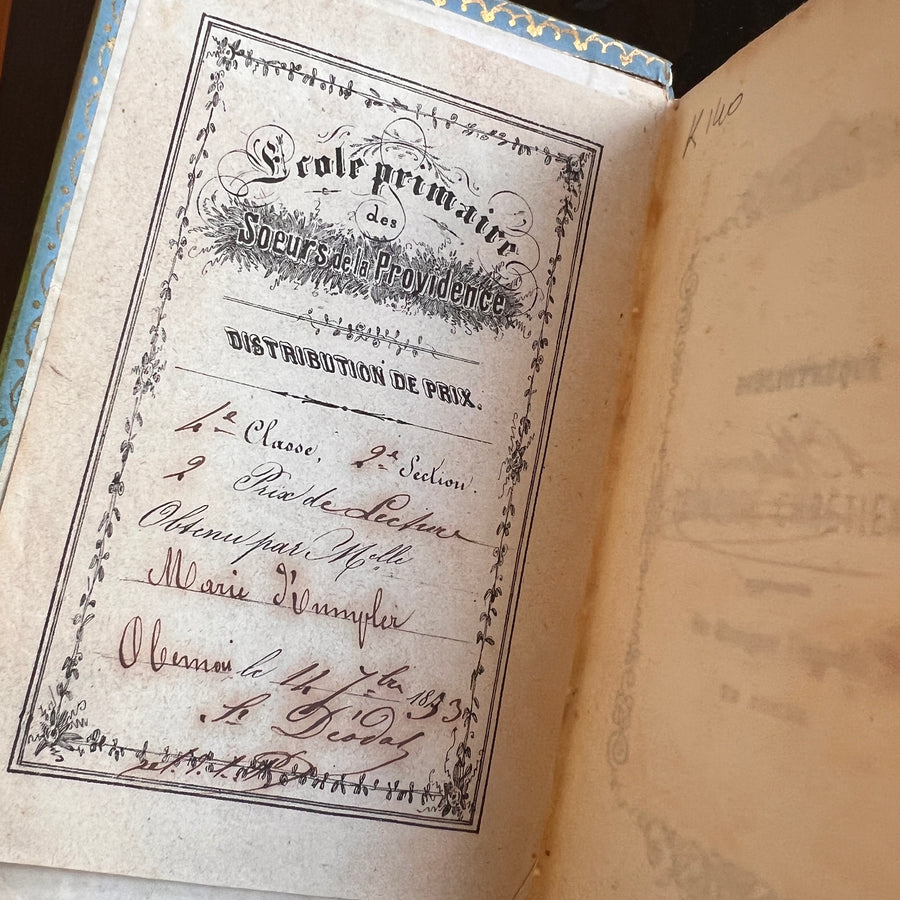 École primaire
des
Soeurs de la Providence
DISTRIBUTION DE PRIX.
4e Classe, 2e Section.
2 Prix de Lecture
Obtenu par Melle
Marie
Obernai le 14 7bre 1853
Sr Déodat
K140